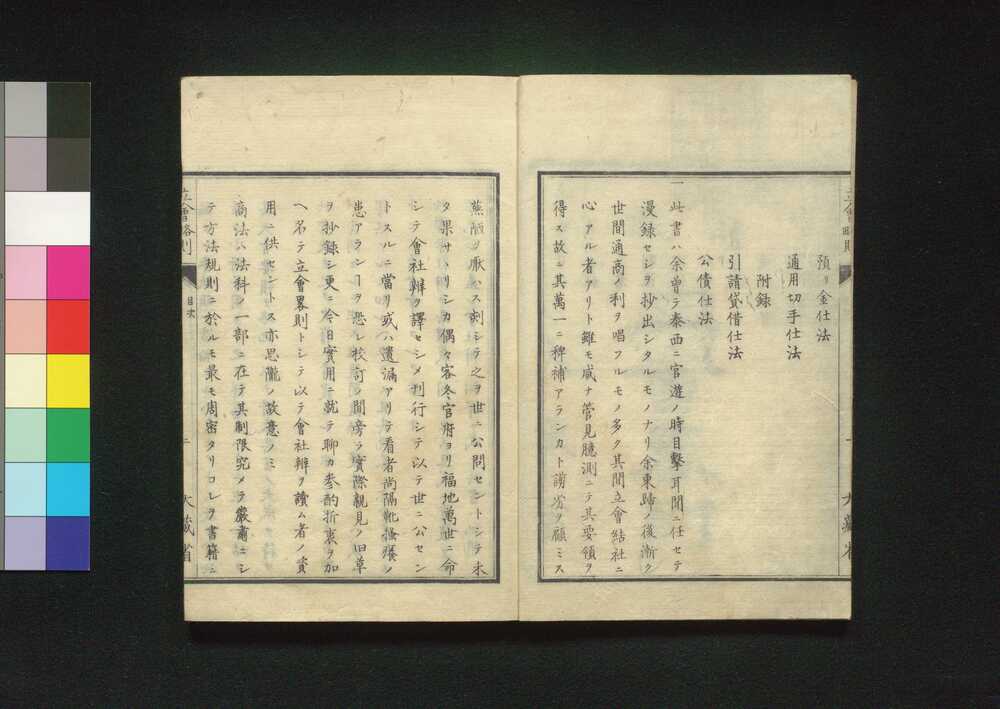 預リ金仕法
通用切手仕法
附録
引請貸借仕法
公債仕法
一此書ハ余曽テ泰西ニ官遊ノ時目撃耳聞ニ任セテ
漫録セシヲ抄出シタルモノナリ余東歸ノ後漸ク
世間通商ノ利ヲ唱フルモノ多ク其間立會結社ニ
心アル者アリト雖モ咸ナ管見臆測ニテ其要領ヲ
得ス故ニ其萬一ニ稗補アランカト謭劣ヲ顧ミス
蕪陋ヲ厭ハス刻シテ之ヲ世ニ公問セントシテ未
タ果サヽリシカ偶々客冬官府ヨリ福地萬世ニ命
シテ會社辨ヲ譯セシメ刊行シテ以テ世ニ公セン
トスルニ當リ或ハ遺漏アリテ看者尚隔靴搔癢ノ
患アランヿヲ恐レ校訂ノ間旁ラ實際親見ノ旧草
ヲ抄録シ更ニ今日實用ニ就テ聊カ参酌折衷ヲ加
ヘ名テ立會畧則トシテ以テ會社辨ヲ讀ム者ノ資
用ニ供セントス亦思隴ノ故意ノミ
商法ハ法科ノ一部ニ在テ其制限究メテ嚴肅ニシ
テ方法規則ニ於ルモ最モ周密タリコレヲ書籍ニ
立會略則
目次
二
大藏省